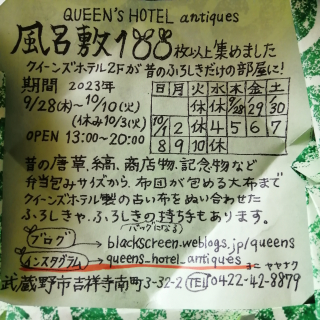 QUEEN'S HOTEL antiques
風呂敷188枚以上集めました
クイーンズホテル2Fが昔のふろしきだけの部屋に!
期間 2023年
9/28(木)〜10/10(火)
(休み10/3(火))
OPEN 13:00〜20:00
日 月 火 水 木 金 土
休 休 9/28 29 30
10/1 2 休 4 5 6 7
8 9 10 休
昔の唐草、縞、商店物、記念物など
弁当包みサイズから、布団が包める大布まで
クイーンズホテル製の古い布をぬい合わせた
ふろしきや、ふろしきの持ち手もあります。
(バッグになる)
ブログ→blackscreen.weblogs.jp/queens
インスタグラム→queens_hotel_antiques
武蔵野市吉祥寺南町3-32-2 TEL0422-42-8879